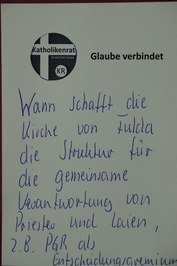 Katholikenrat
KR
Glaube verbindet
Wann schafft die
Kirche von Fulda
die Struktur für
die gemeinsame
Verantwortung von
Priester und Laien,
z.B. PGR als
Entscheidungsgremium